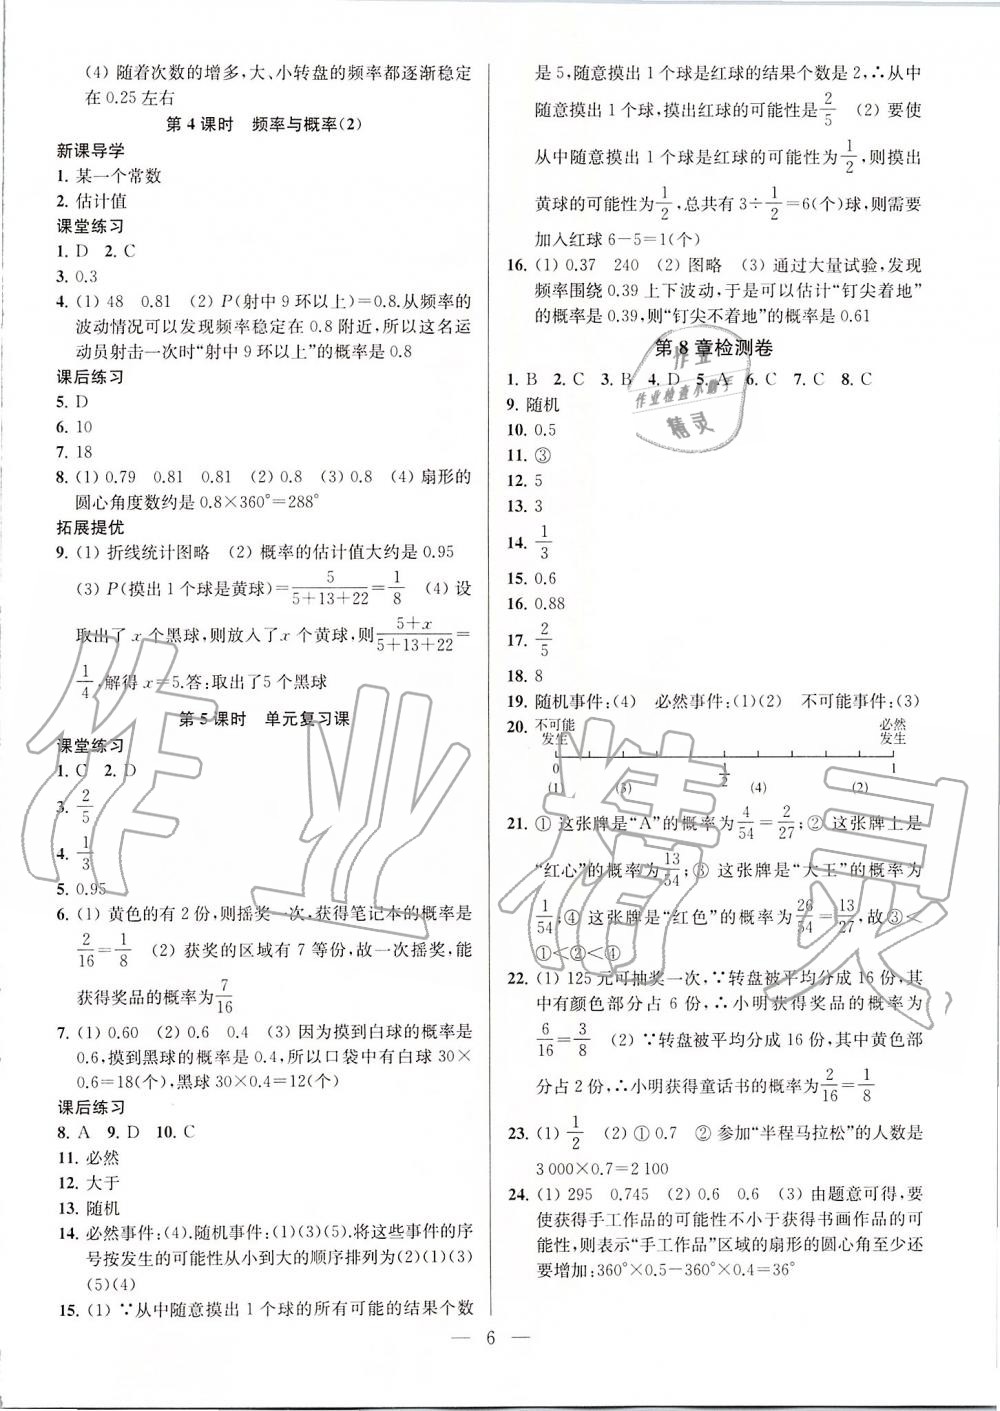 (4) 随着次数的增多,大、小转盘的频率都逐渐稳定
在 0.25 左右
第 4 课时　频率与概率(2)
新课导学
1. 某一个常数
2. 估计值
课堂练习
1. D　2. C
3. 0.3
4. (1) 48　0.81　(2) P(射中 9 环以上)=0.8.从频率的
波动情况可以发现频率稳定在 0.8 附近,所以这名运
动员射击一次时“射中 9 环以上”的概率是 0.8
课后练习
5. D
6. 10
7. 18
8. (1) 0.79　0.81　0.81　(2) 0.8　(3) 0.8　(4) 扇形的
圆心角度数约是 0.8×360°=288°
拓展提优
9. (1) 折线统计图略　(2) 概率的估计值大约是 0.95
(3) P(摸出 1 个球是黄球)=5/(5+13+22)=1/8　(4) 设
取出了 x 个黑球,则放入了 x 个黄球,则(5+x)/(5+13+22)=
1/4,解得 x=5.答:取出了5 个黑球
第 5 课时　单元复习课
课堂练习
1. C　2. D
3. 2/5
4. 1/3
5. 0.95
6. (1) 黄色的有 2 份,则摇奖一次,获得笔记本的概率是
2/16=1/8　(2) 获奖的区域有 7 等份,故一次摇奖,能
获得奖品的概率为7/16
7. (1) 0.60　(2) 0.6　0.4　(3) 因为摸到白球的概率是
0.6,摸到黑球的概率是 0.4,所以口袋中有白球 30×
0.6=18(个),黑球 30×0.4=12(个)
课后练习
8. A　9. D　10. C
11. 必然
12. 大于
13. 随机
14. 必然事件:(4).随机事件:(1)(3)(5).将这些事件的序
号按发生的可能性从小到大的顺序排列为(2)(1)(3)
(5)(4)
15. (1) ∵从中随意摸出 1 个球的所有可能的结果个数
是 5,随意摸出 1 个球是红球的结果个数是 2,∴从中
随意摸出 1 个球,摸出红球的可能性是2/5　(2) 要使
从中随意摸出 1 个球是红球的可能性为1/2,则摸出
黄球的可能性为1/2,总共有 3÷1/2=6(个)球,则需要
加入红球 6-5=1(个)
16. (1) 0.37　240　(2) 图略　(3) 通过大量试验,发现
频率围绕 0.39 上下波动,于是可以估计“钉尖着地”
的概率是 0.39,则“钉尖不着地”的概率是 0.61
第 8 章检测卷
1. B　2. C　3. B　4. D　5. A　6. C　7. C　8. C
9. 随机
10. 0.5
11. ③
12. 5
13. 3
14. 1/3
15. 0.6
16. 0.88
17. 2/5
18. 8
19. 随机事件:(4)　必然事件:(1)(2)　不可能事件:(3)
20. 不可能　必然
发生　发生
0　1/2　1
(1)　(3)　(4)　(2)
21. ① 这张牌是“A”的概率为4/54=2/27;② 这张牌上是
“红心”的概率为13/54;③ 这张牌是“大王”的概率为
1/54;④ 这张牌是“红色”的概率为26/54=13/27,故③<
①<②<④
22. (1) 125 元可抽奖一次,∵转盘被平均分成 16 份,其
中有颜色部分占 6 份,∴小明获得奖品的概率为
6/16=3/8　(2) ∵转盘被平均分成 16 份,其中黄色部
分占 2 份,∴小明获得童话书的概率为2/16=1/8
23. (1) 1/2　(2) ① 0.7　② 参加“半程马拉松”的人数是
3 000×0.7=2 100
24. (1) 295　0.745　(2) 0.6　0.6　(3) 由题意可得,要
使获得手工作品的可能性不小于获得书画作品的可
能性,则表示“手工作品”区域的扇形的圆心角至少还
要增加:360°×0.5-360°×0.4=36°
— 6 —
作业
作业检查小帮手
精灵
作业精灵